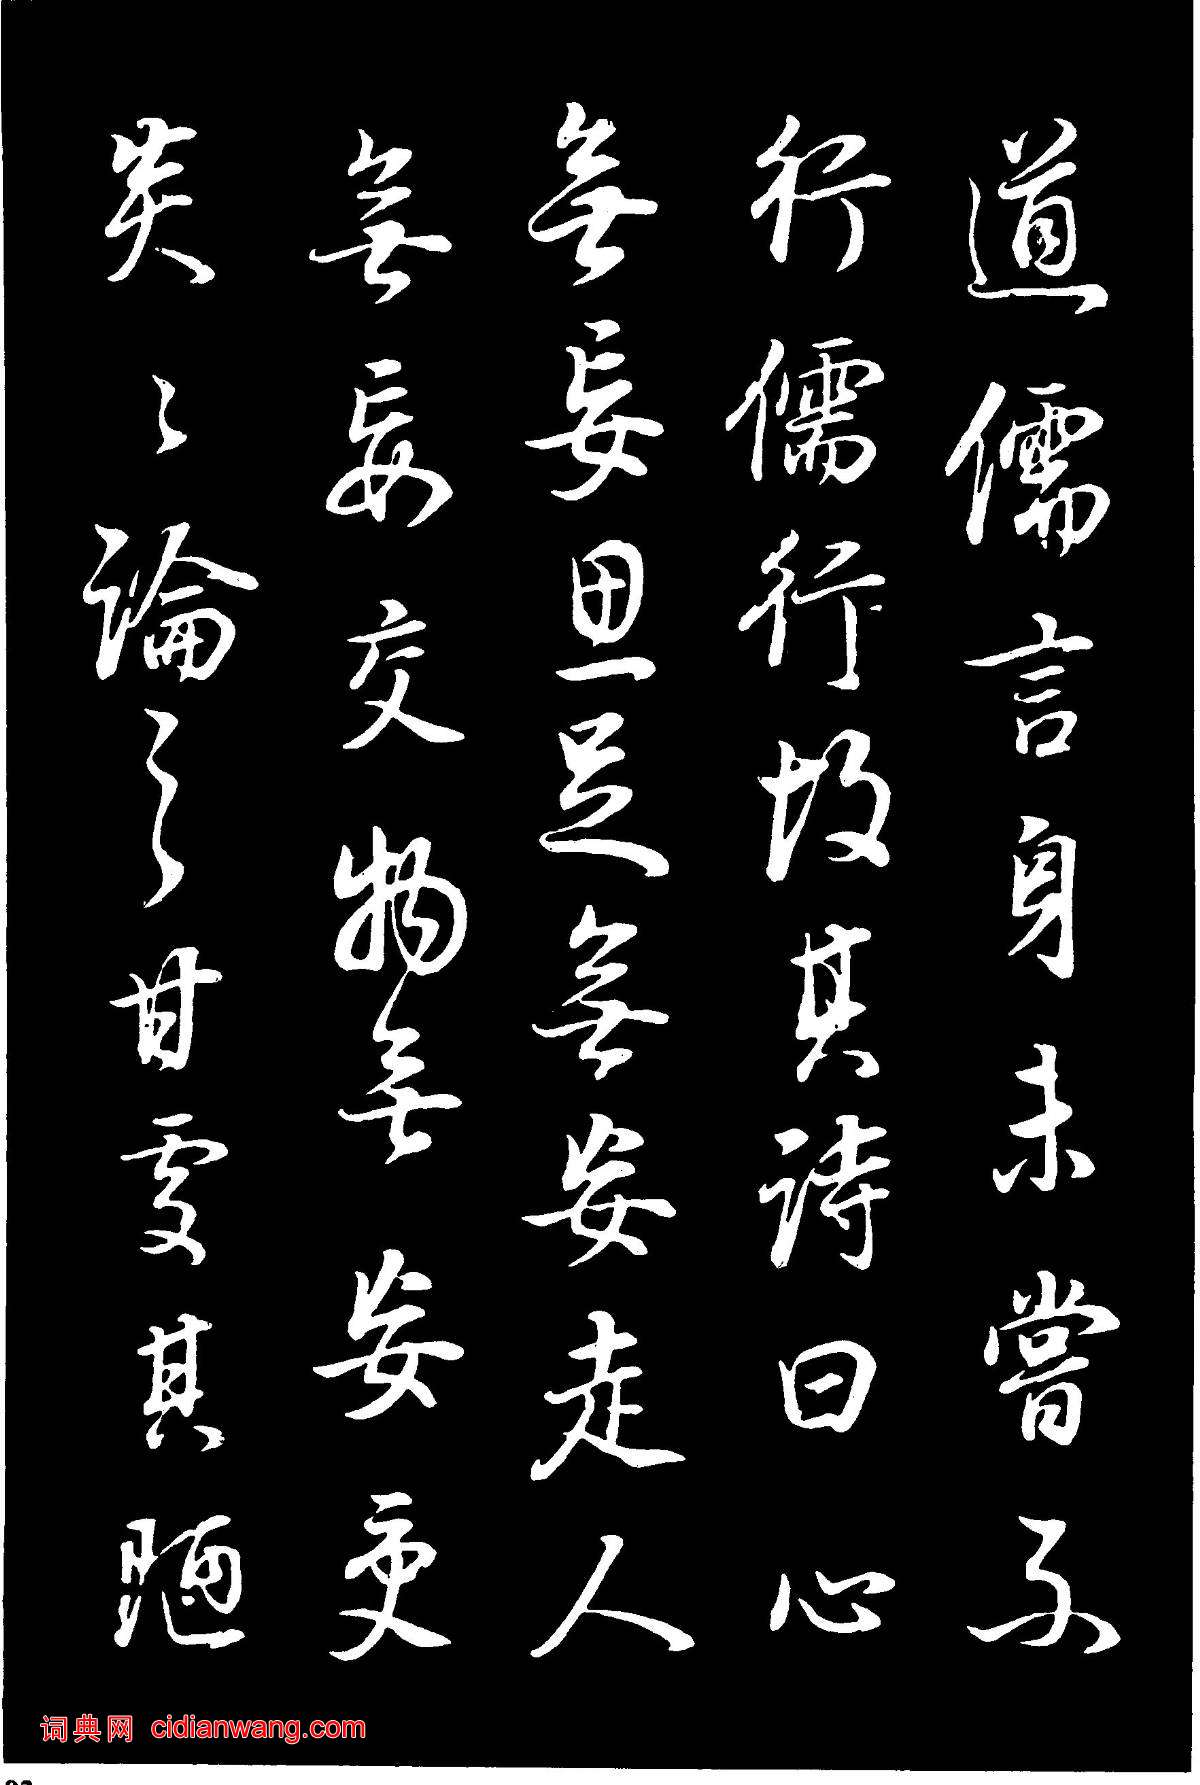 道儒言身未嘗不
行儒行故其詩曰心
無妄思足無妄走人
無妄交物無妄受
炎々論之甘處其陋
词典网 cidianwang.com